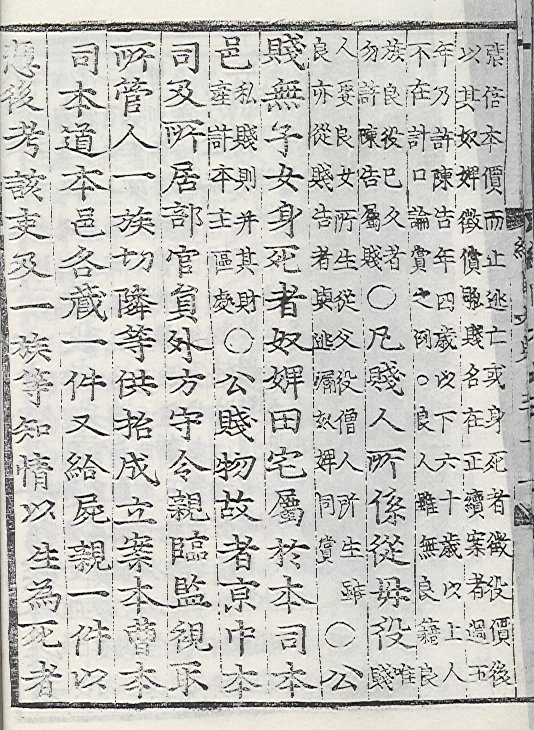 倍本價而止逃亡或身死者徵役價後
以其奴婢徵價賤名在正續案者過五
年乃許陳告年四歲以下六十歲以上人
不在計口論賞之例○良人雖無良籍良
族良役已久者
勿許陳告屬賤
○凡賤人所係從毋役
唯
賤
人娶良女所生從父役僧人所生雖
良亦從賤告者眞逃漏奴婢同賞
○公
賤無子女身死者奴婢田宅屬於本司本
邑
私賤則并其財
產許本主區處
○公賤物故者京中本
司及所居部官員外方守令親臨監視取
所管人一族切隣等供招成立案本曹本
司本道本邑各藏一件又給屍親一件以
憑後考該吏及一族等知情以生為死者